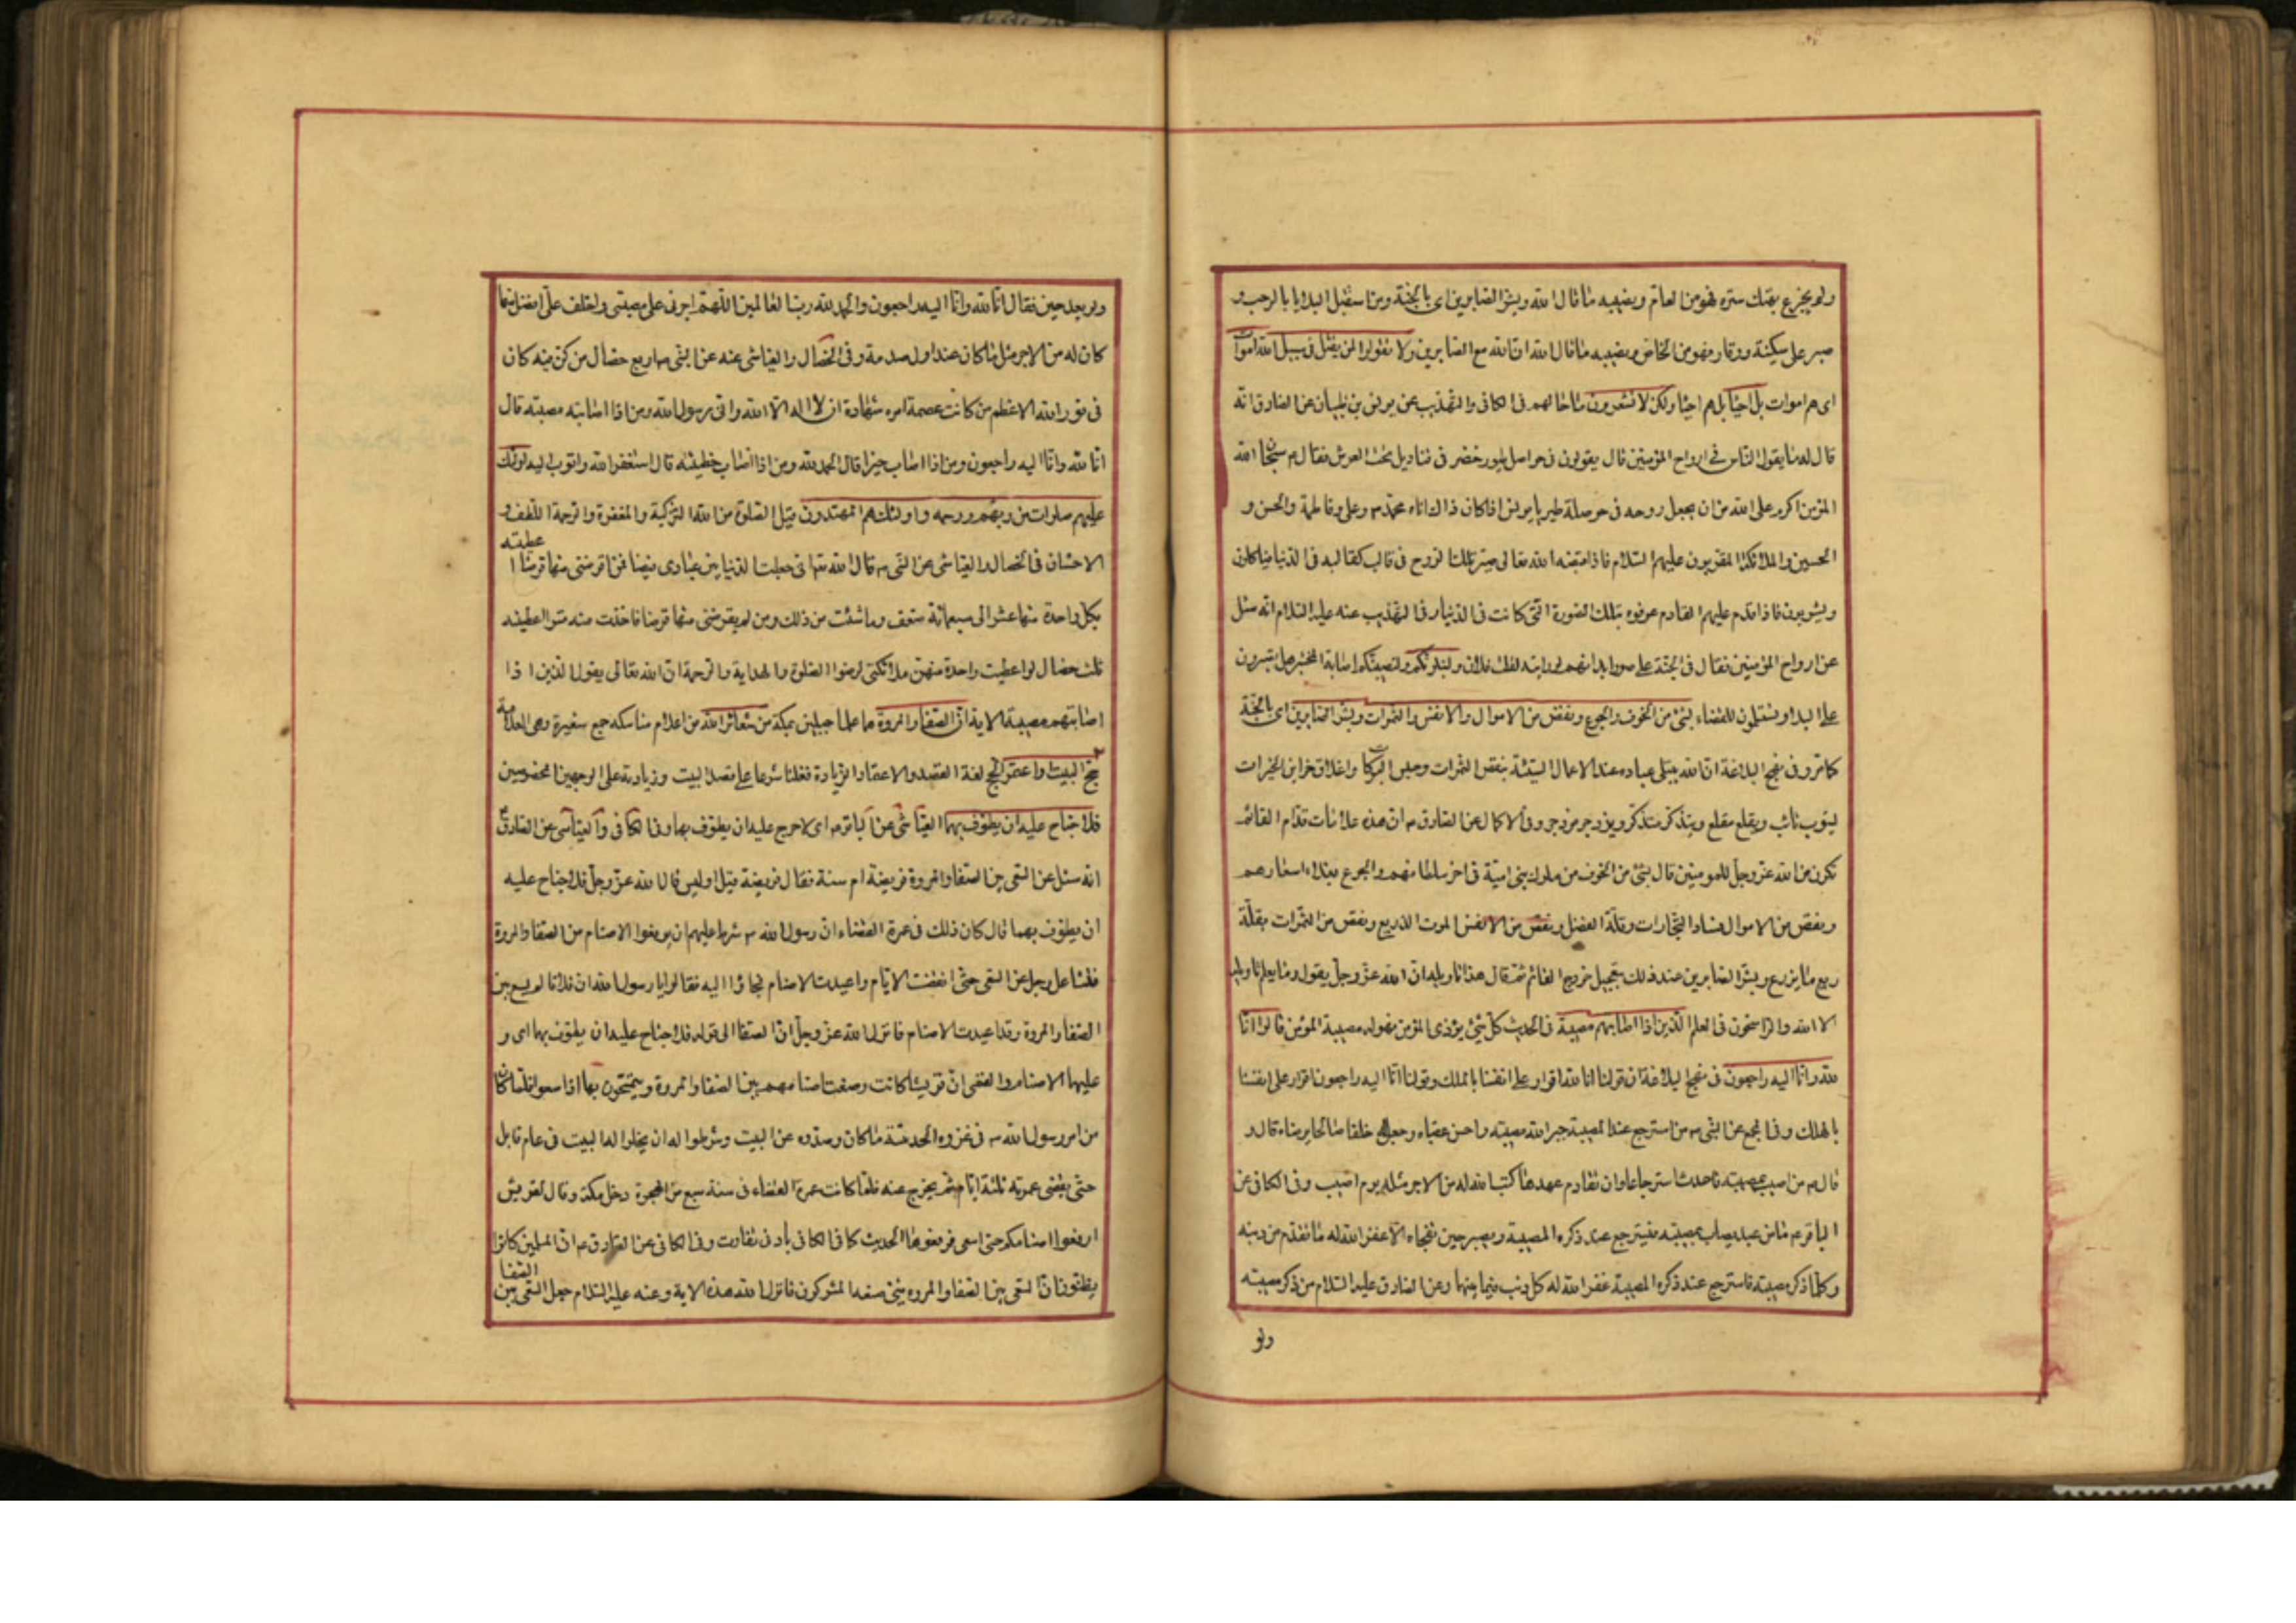 ولم يجزع بهتك ستره فهو من العام ونصيبه ما قال الله وبشر الصابرين اى بالجنة ومن استقبل البلايا بالرحب و
صبر على سكينة ووقار فهو من الخاص ونصيبه ما قال الله ان الله مع الصابرين ولا تقولوا لمن يقتل فى سبيل الله اموات
اى هم اموات بل احياء بل هم احياء ولكن لا تشعرون ما حالهم فى الكافى والتهذيب عن يونس بن ظبيان عن الصادق انه
قال له ما يقول الناس فى ارواح المؤمنين قال يقولون فى حواصل طيور خضر فى قناديل تحت العرش فقال ع سبحان الله
المؤمن اكرم على الله من ان يجعل روحه فى حوصلة طير يا يونس اذا كان ذلك اتاه محمد ص وعلى وفاطمة والحسن و
الحسين والملائكة المقربون عليهم السلام فاذا قبضه الله تعالى صير تلك الروح فى قالب كقالبه فى الدنيا فياكلون
ويشربون فاذا قدم عليهم القادم عرفوه بتلك الصورة التى كانت فى الدنيا وفى التهذيب عنه عليه السلام انه سئل
عن ارواح المؤمنين فقال فى الجنة على صور ابدانهم لو رايته لقلت فلان ولنبلونكم ولنصيبنكم اصابة المختبر هل تصبرون
على البلاء وتستسلمون للقضاء بشئ من الخوف والجوع ونقص من الاموال والانفس والثمرات وبشر الصابرين اى بالجنة
كما مر وفى نهج البلاغة ان الله يبتلى عباده عند الاعمال السيئة بنقص الثمرات وحبس البركات واغلاق خزاين الخيرات
ليتوب تائب ويقلع مقلع ويتذكر متذكر ويزدجر مزدجر وفى الاكمال عن الصادق ع ان هذه علامات قدام القائم
تكون من الله عز وجل للمومنين قال بشئ من الخوف من ملوك بنى امية فى اخر سلطانهم والجوع بغلاء اسعارهم
ونقص من الاموال فساد التجارات وقلة الفضل ونقص من الانفس الموت الذريع ونقص من الثمرات بقلة
ريع ما يزرع وبشر الصابرين عند ذلك بتعجيل خروج القائم ثم قال هذا تاويله ان الله عز وجل يقول وما يعلم تاويله
الا الله والراسخون فى العلم الذين اذا اصابتهم مصيبة فى الحديث كل شئ يؤذى المؤمن فهو له مصيبة المؤمن قالوا انا
لله وانا اليه راجعون فى نهج البلاغة ان قولنا انا لله اقرار على انفسنا بالملك وقولنا انا اليه راجعون اقرار على انفسنا
بالهلك وفى المجمع عن النبى ص من استرجع عند المصيبة جبر الله مصيبته واحسن عقباه وجعل له خلفا صالحا يرضاه قال و
قال ع من اصيب بمصيبة فاحدث استرجاعا وان تقادم عهدها كتب الله له من الاجر مثله يوم اصيب وفى الكافى عن
الباقر ع ما من عبد يصاب بمصيبة فيسترجع عند ذكره المصيبة ويصبر حين تفجاه الا غفر الله له ما تقدم من ذنبه
وكلما ذكر مصيبته فاسترجع عند ذكره المصيبة غفر الله له كل ذنب فيما بينهما وعن الصادق عليه السلام من ذكر مصيبته
ولو
ولو بعد حين فقال انا لله وانا اليه راجعون والحمد لله رب العالمين اللهم اجرنى على مصيبتى واخلف على افضل منها
كان له من الاجر مثل ما كان عند اول صدمة وفى الخصال والعياشى عنه عن النبى ص اربع خصال من كن فيه كان
فى نور الله الاعظم من كانت عصمة امره شهادة ان لا اله الا الله وانى رسول الله ومن اذا اصابته مصيبة قال
انا لله وانا اليه راجعون ومن اذا اصاب خيرا قال الحمد لله ومن اذا اصاب خطيئة قال استغفر الله واتوب اليه اولئك
عليهم صلوات من ربهم ورحمة واولئك هم المهتدون قيل الصلوة من الله التزكية والمغفرة والرحمة اللطف و
الاحسان فى الخصال والعياشى عن النبى ص قال الله تعالى انى جعلت الدنيا بين عبادى فيضا فمن اقرضنى منها قرضا اعطيته
بكل واحدة منها عشرا الى سبعمائة ضعف وما شئت من ذلك ومن لم يقرضنى منها قرضا فاخذت منه قسرا اعطيته
ثلث خصال لو اعطيت واحدة منهن ملائكتى لرضوا الصلوة والهداية والرحمة ان الله تعالى يقول الذين اذا
اصابتهم مصيبة الاية ان الصفا والمروة هما علما جبلين بمكة من شعائر الله من اعلام مناسكه جمع شعيرة وهى العلامة فمن
حج البيت او اعتمر الحج لغة القصد والاعتمار الزيارة فغلبا شرعا على قصد البيت وزيارته على الوجهين المخصوصين
فلا جناح عليه ان يطوف بهما العياشى عن الباقر ع اى لا حرج عليه ان يطوف بهما وفى الكافى والعياشى عن الصادق ع
انه سئل عن السعى بين الصفا والمروة فريضة ام سنة فقال فريضة قيل اوليس قال الله عز وجل فلا جناح عليه
ان يطوف بهما قال كان ذلك فى عمرة القضاء ان رسول الله ص شرط عليهم ان يرفعوا الاصنام من الصفا والمروة
فتشاغل رجل عن السعى حتى انقضت الايام واعيدت الاصنام فجاؤا اليه فقالوا يا رسول الله ان فلانا لم يسع بين
الصفا والمروة وقد اعيدت الاصنام فانزل الله عز وجل ان الصفا الى قوله فلا جناح عليه ان يطوف بهما اى و
عليهما الاصنام والقمى ان قريشا كانت وضعت اصنامهم بين الصفا والمروة ويتمسحون بها اذا سعوا فلما كان
من امر رسول الله ص فى غزوة الحديبية ما كان وصدوه عن البيت وشرطوا له ان يخلوا له البيت فى عام قابل
حتى يقضى عمرته ثلثة ايام ثم يخرج عنه فلما كانت عمرة القضاء فى سنة سبع من الهجرة دخل مكة وقال لقريش
ارفعوا اصنامكم حتى اسعى فرفعوها الحديث كما فى الكافى بادنى تفاوت وفى الكافى عن الصادق ع ان المسلمين كانوا
يظنون ان السعى بين الصفا والمروة شئ صنعه المشركون فانزل الله هذه الاية وعنه عليه السلام جعل السعى بين الصفا